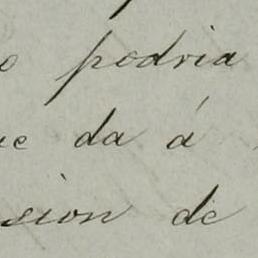 o podria
ue da á
sion de